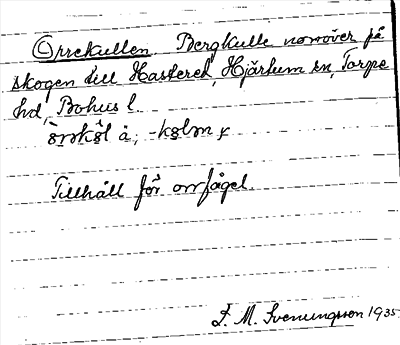 Orrekullen. Bergkulle norröver på
skogen till Hasteröd, Hjärtum sn, Torpe
hd, Bohus l.
Tillhåll för orrfågel.
F. M. Svenungsson 1935.